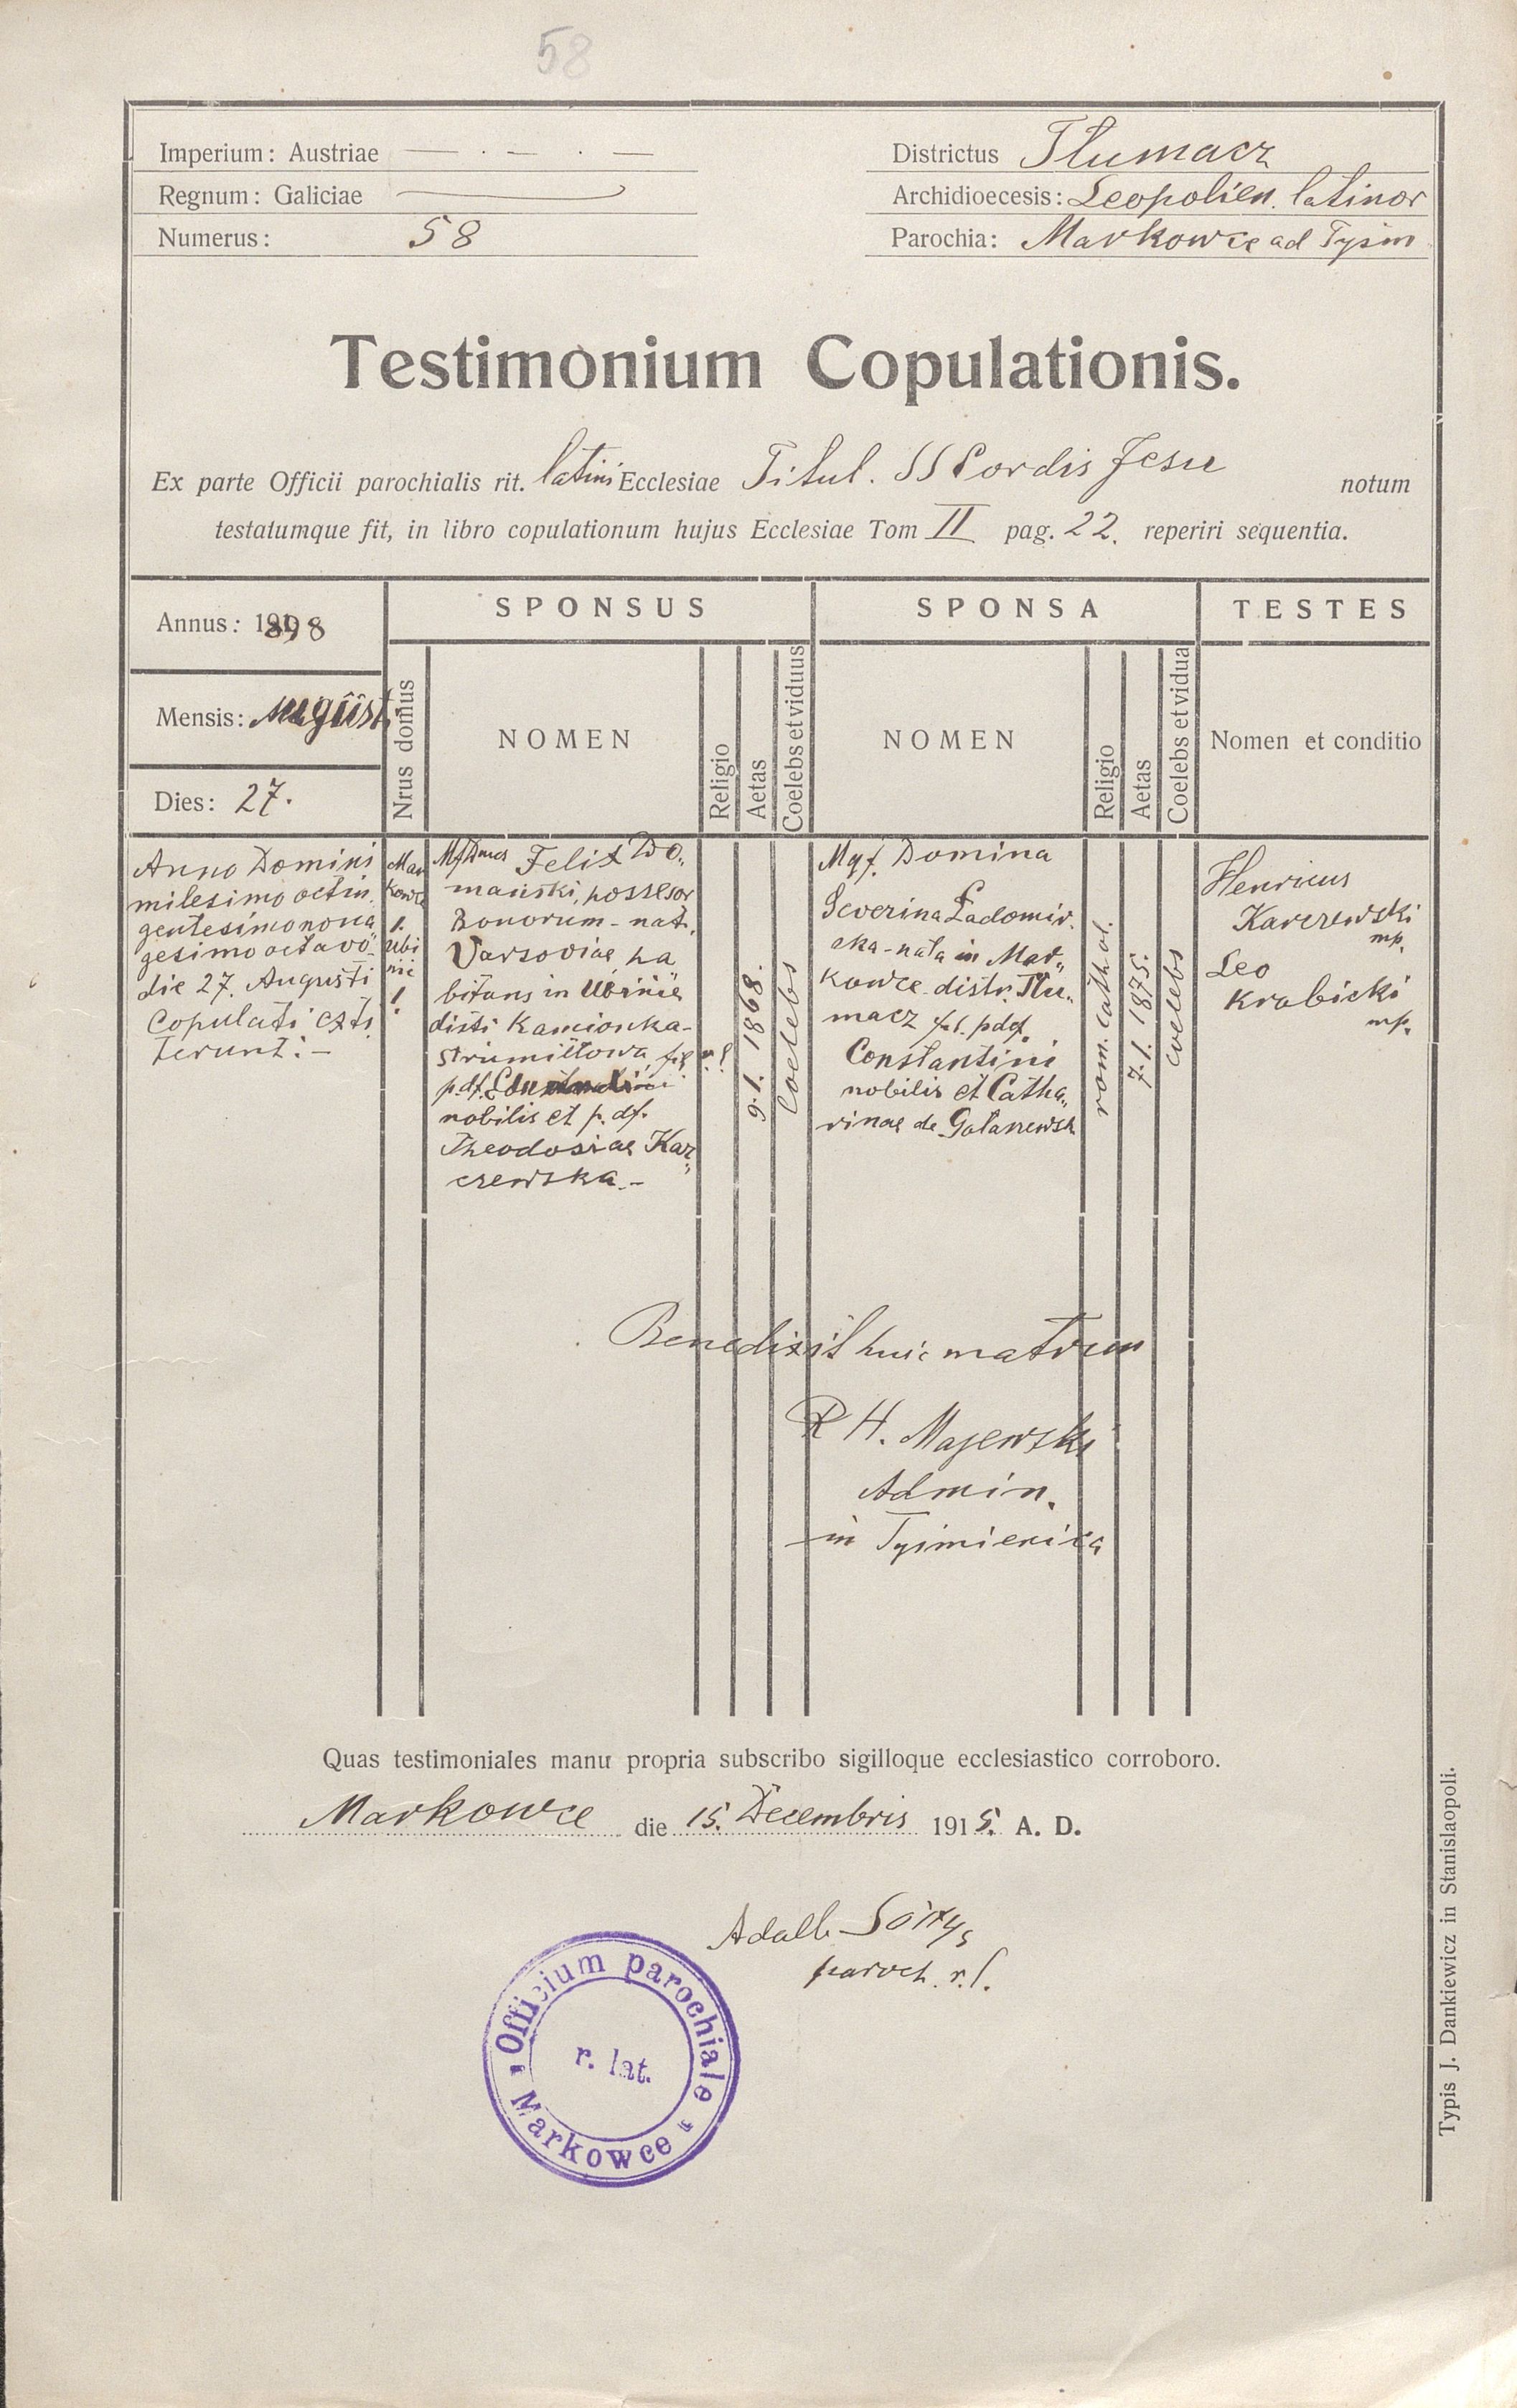 58
Imperium: Austriae
Regnum: Galiciae
Numerus: 58
Districtus Tłumacz
Archidioecesis: Leopolien. latinor
Parochia: Markowce ad Tyśm
Testimonium Copulationis.
Ex parte Officii parochialis rit. latini Ecclesiae Titul. SS Cordis Jesu notum
testatumque fit, in libro copulationum hujus Ecclesiae Tom II pag. 22. reperiri sequentia.
Annus: 1898
Mensis: Augusti
Dies: 27.
SPONSUS
SPONSA
TESTES
Nrus domus
NOMEN
Religio
Aetas
Coelebs et viduus
NOMEN
Religio
Aetas
Coelebs et vidua
Nomen et conditio
Anno Domini
milesimo octin
gentesimo nona„
gesimo octavo
die 27. Augusti
Copulati exti
terunt: –
Mar
kowce
1.
Ubi
nie
1.
Felix Do„
mański, possesor
Bonorum - nat.
Varsoviae, ha
bitans in Ubinie
distr Kamionka-
Strumiłłowa, fil
p.df.
nobilis et p. df.
Theodosiae Kar„
czewska –
9.1. 1868.
Coelebs
Mgf. Domina
Severina Ładomir.
ska - nata in Mar„
kowce distr. Tłu„
macz fil. pdef.
Constantini
nobilis et Catha„
rinae de
rom. cathol.
7.1. 1875.
coelebs
Henricus
Karczewski
mp.
Leo
Krobicki
mp.
Benedixit huic matrim
R H. Majewski
Admin.
in Tyśmienica
Quas testimoniales manu propria subscribo sigilloque ecclesiastico corroboro.
Markowce die 15. Decembris 1915. A. D.
Adalb.
paroch. r.l.
Officium parochiale
r. lat.
Markowce
Typis J. Dankiewicz in Stanislaopoli.